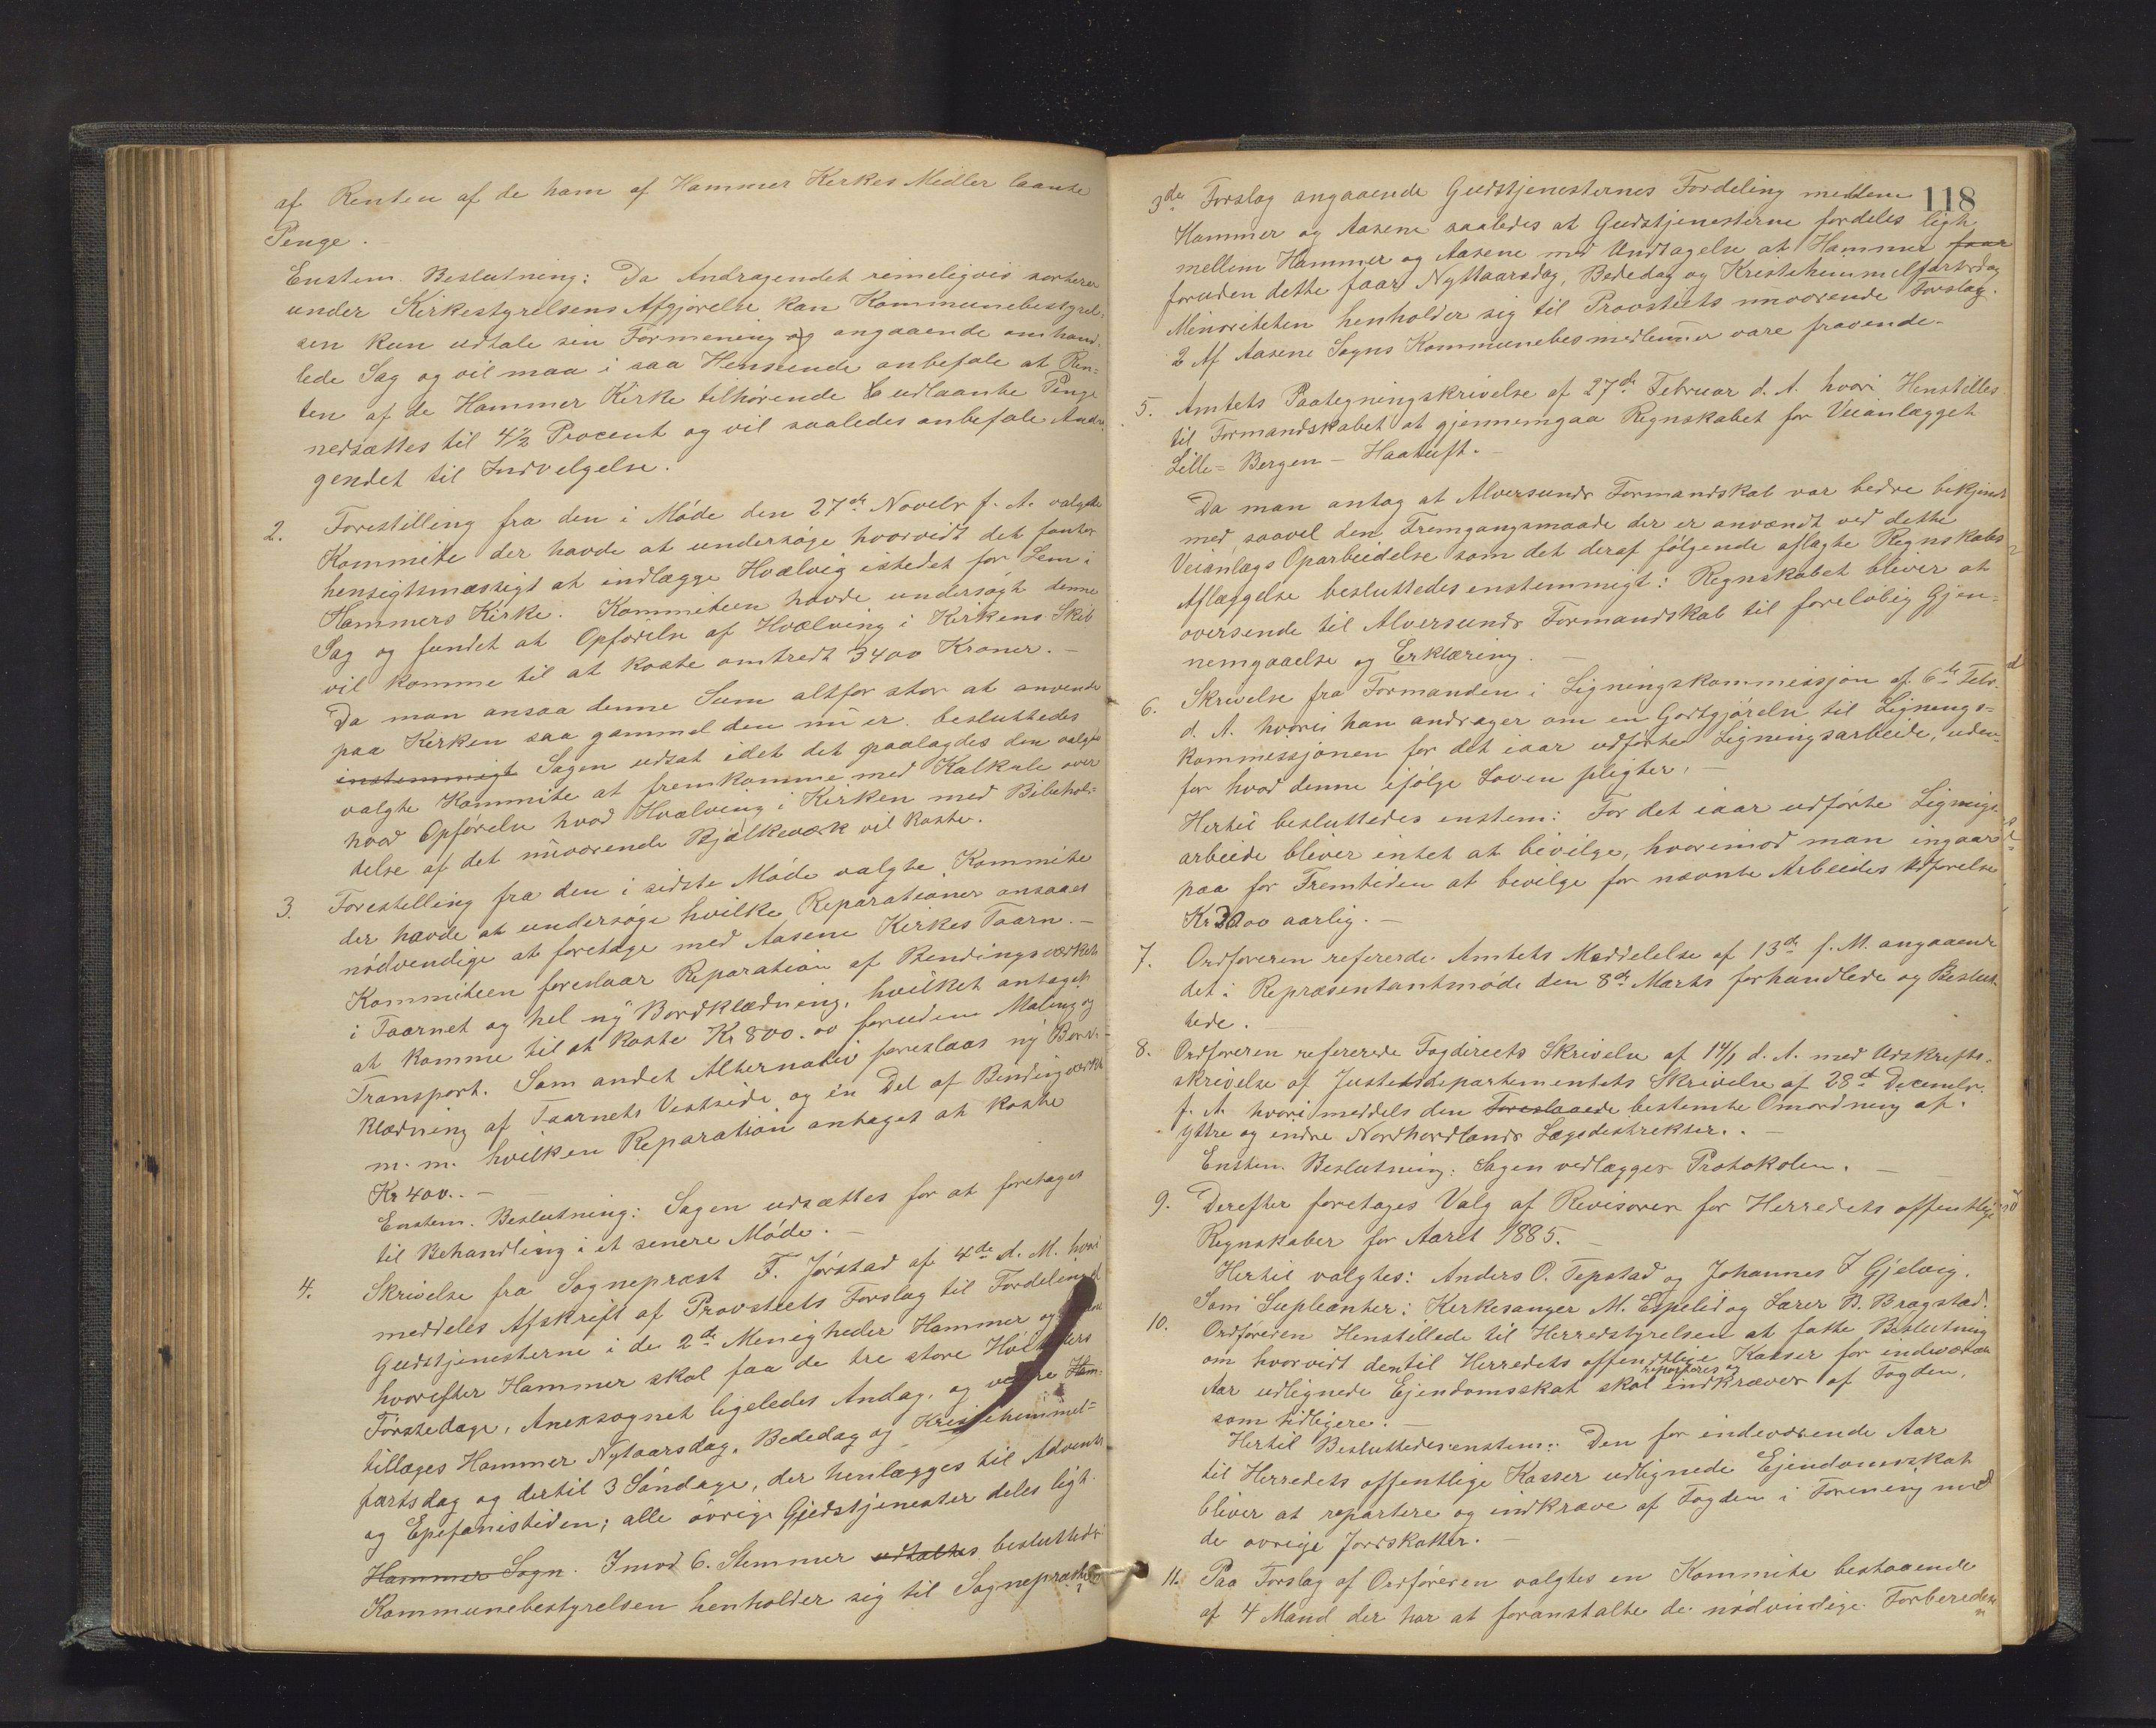 af Renten af de ham af Hammer Kirkes Midler laante
Penge.
Enstem. Beslutning: Da Andragendet rimeligvis sorterer
under Kirkestyrelsens Afgjørelse kan Kommunebestyrel-
sen kun udtale sin Formening og angaaende omhand-
lede Sag og vil maa i saa Henseende anbefale at Ren-
ten af de Hammer Kirke tilhørende udlaante Penge
nedsættes til 4½ Procent og vil saaledes anbefale Andra-
gendet til Indvelgelse.
2. Forestilling fra den i Møde den 27de Novebr f. A. valgte
Kommite der havde at undersøge hvorvidt det fantes
hensigtsmæssigt at indlægge Hvælvig istedet for Lem i
Hammers Kirke. Kommiteen havde undersøgt denne
Sag og fundet at Opførelse af Hvælving i Kirkens Skib
vil komme til at koste omtredt 3400 Kroner. –
Da man ansaa denne Sum altfor stor at anvende
paa Kirken saa gammel den nu er. besluttedes
enstemmigt Sagen udsat idet det paalagdes den valgte
valgte Kommite at fremkomme med Kalkule over
hvad Opførelse hvad Hvælving i Kirken med Bibehol-
delse af det nuværende Bjælkeværk vil koste.
3. Forestelling fra den i sidste Møde valgte Kommite
der havde at undersøge hvilke Reparationer ansaaes
nødvendige at foretage med Aasene Kirkes Taarn. –
Kommiteen foreslaar Reparation af Bendingsværket
i Taarnet og hel ny Bordklædning, hvilket antages
at komme til at koste Kr 800.00 foruden Maling og
Transport. Som andet Alternativ foreslaas ny Bord-
klædning af Taarnets Vestside og en Del af Bindingværket
m. m. hvilken Reparation antages at koste
Kr 400. –
Enstem. Beslutning: Sagen udsættes for at foretages
til Behandling i et senere Møde. –
4. Skrivelse fra Sognepræst F. Jørstad af 4de d. M. hvori
meddeles Afskrift af Provsteets Forslag til Fordeling af
Gudstjenesterne i de 2de Menigheder Hammer og
hvorefter Hammer skal faa de tre store Høitiders
Førstedage, Aneksognet ligeledes Andag, og
tillæges Hammer Nytaarsdag, Bededag og Kristihimmel-
fartsdag og dertil 3 Søndage, der henlægges til Advents
og Epefanistiden; alle øvrige Gjedstjenester deles ligt.
Hammer Sogn. Imod 6. Stemmer udtaltes besluttede
Kommunebestyrelsen henholder sig til Sognepræstens
118
3die Forslag angaaende Gudstjenesternes Fordeling mellem
Hammer og Aasene saaledes at Gudstjenesterne fordeles ligt
mellem Hammer og Aasene med Undtagelse at Hammer faar
foruden dette faar Nyttaarsdag, Bededag og Kristehimmelfartsdag
Minoriteten henholder sig til Provsteets nuværende Forslag.
2 Af Aasene Sogns Kommunebesmedlemmer vare fravende.
5. Amtets Paategningskrivelse af 27de Februar d. A. hvori Henstilles
til Formandskabet at gjennemgaa Regnskabet for Veianlægget
Lille-Bergen – Haatuft. –
Da man antog at Alversunds Formandskab var bedre bekjendt
med saavel den Fremgangsmaade der er anvendt ved dette
Veianlægs Oparbeidelse som det deraf følgende aflagte Regnskabs
Aflæggelse besluttedes enstemmigt: Regnskabet bliver at
oversende til Alversunds Formandskab til foreløbig Gjen-
nemgaaelse og Erklæring. –
6. Skrivelse fra Formanden i Ligningskommissjon af 6te Febr.
d. A. hvori han andrager om en Godtgjørelse til Lignings-
kommessjonen for det iaar udførte Ligningsarbeide, uden-
for hvad denne ifølge Loven pligter. –
Hertil besluttedes enstem: For det iaar udførte Lignings
arbeide bliver intet at bevilge, hvorimod man ingaar
paa for Fremtiden at bevilge for nævnte Arbeides Udførelse
Kr 30.00 aarlig. –
7. Ordføreren refererde Amtets Meddelelse af 13de f. M. angaaende
det i Repræsentantmøde den 8de Marts forhandlede og Beslut-
tede.
8. Ordføreren refererede Fogdirects Skrivelse af 14/1 d. A. med Udskrifts-
skrivelse af Justetsdepartementets Skrivelse af 28de Decembr.
f. A. hvori meddels den Foreslaaede bestemte Omordning af
yttre og indre Nordhordlands Lægedestrekter. –
Enstem. Beslutning: Sagen vedlægges Protokolen. –
9. Derefter foretoges Valg af Revisorer for Herredets offentlige
Regnskaber for Aaret 1885. –
Hertil valgtes: Anders O. Tepstad og Johannes I Gjelvig.
Som Supleanter: Kerkesanger M. Espelid og Lærer B. Bragstad.
10. Ordføreren Henstillede til Herredstyrelsen at fatte Beslutning
om hvorvidt den til Herredets offendtlige Kasser for endeværende
Aar udlignede Ejendomsskat skal reparteres og indkræves af Fogden,
som tidligere. –
Hertil Besluttedes enstem: Den for indeværende Aar
til Herredets offentlige Kasser udlignede Ejendomsskat
bliver at repartere og indkræve af Fogden i Forening med
de øvrige Jordskatter. –
11. Paa Forslag af Ordføreren valgtes en Kommite bestaaende
af 4 Mand der har at foranstalte de nødvindige Forberedn